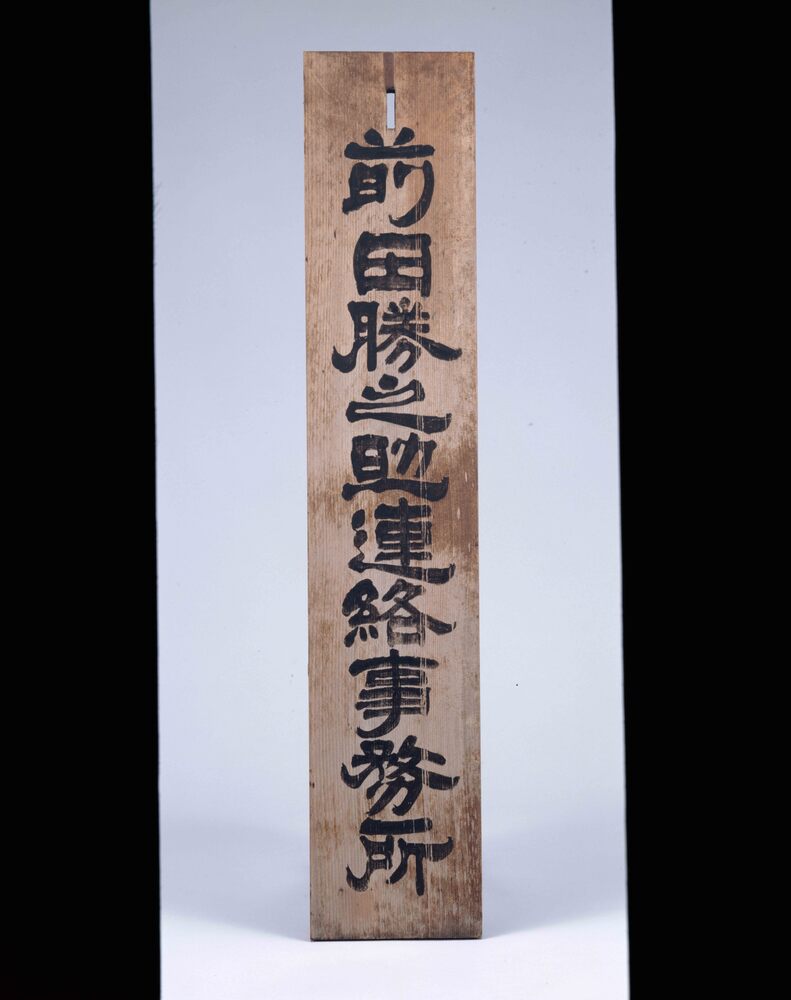 前田勝之助連絡事務所